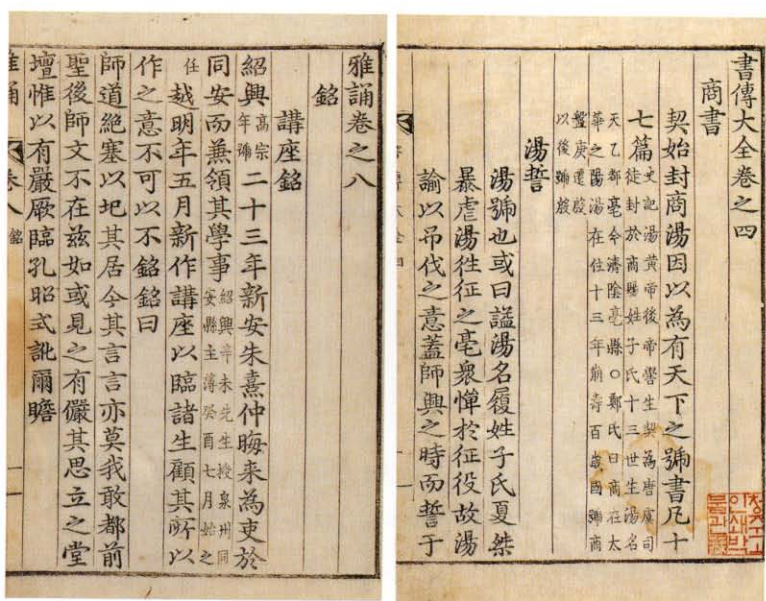 書傳大全卷之四
商書
契始封商湯因以為有天下之號書凡十
七篇史記湯黃帝後帝嚳生契為唐虞司
徒封於商賜姓子氏十三世生湯名
天乙都亳今濟陰亳縣○鄭氏曰商在太
華之陽湯在位十三年崩壽百歲國號商
盤庚遷殷
以後號殷
湯誓
湯號也或曰謚湯名履姓子氏夏桀
暴虐湯徃征之亳衆憚於征役故湯
諭以吊伐之意蓋師興之時而誓于
雅誦卷之八
銘
講座銘
紹興高宗年號二十三年新安朱熹仲晦来為吏於
同安而兼領其學事紹興辛未先生授泉州同安縣主簿癸酉七月始之
任越明年五月新作講座以臨諸生顧其所以
作之意不可以不銘銘曰
師道絶塞以圮其居今其言言亦莫我敢都前
聖後師文不在兹如或見之有儼其思立之堂
壇惟以有嚴厥臨孔昭式訛爾瞻
雅誦 卷八 銘 一